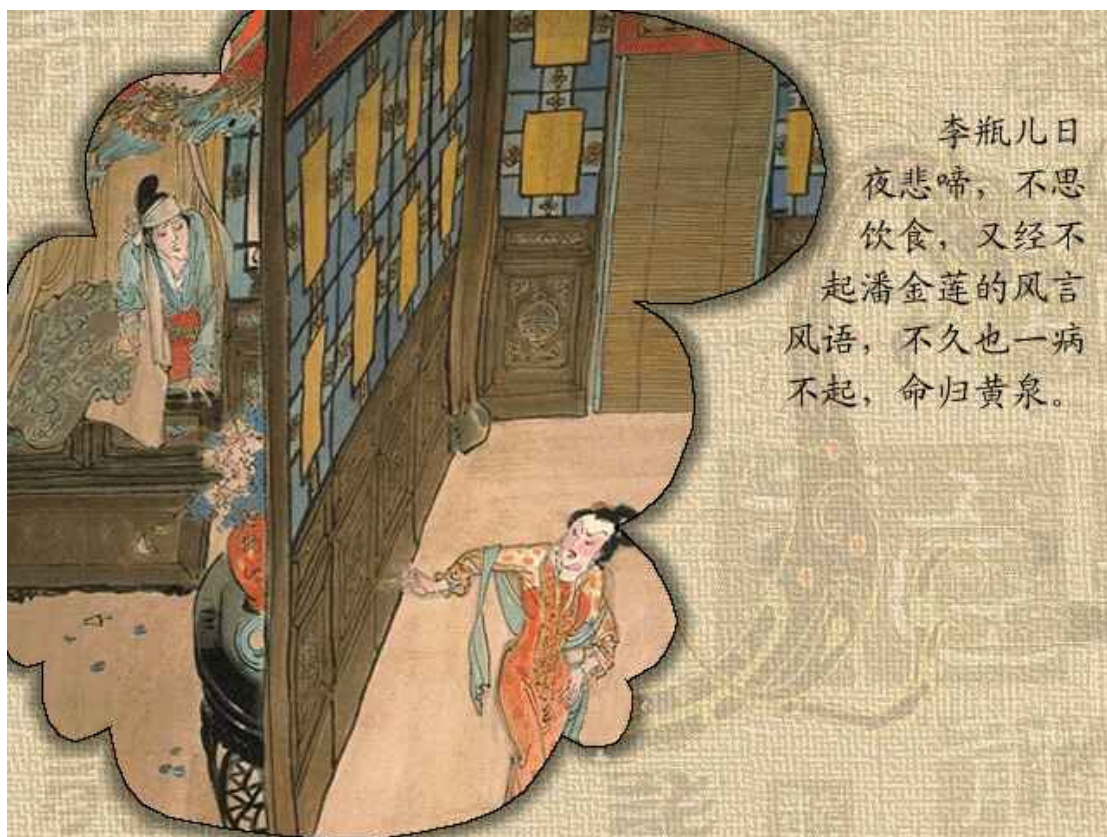 李瓶儿日
夜悲啼，不思
饮食，又经不
起潘金莲的风言
风语，不久也一病
不起，命归黄泉。